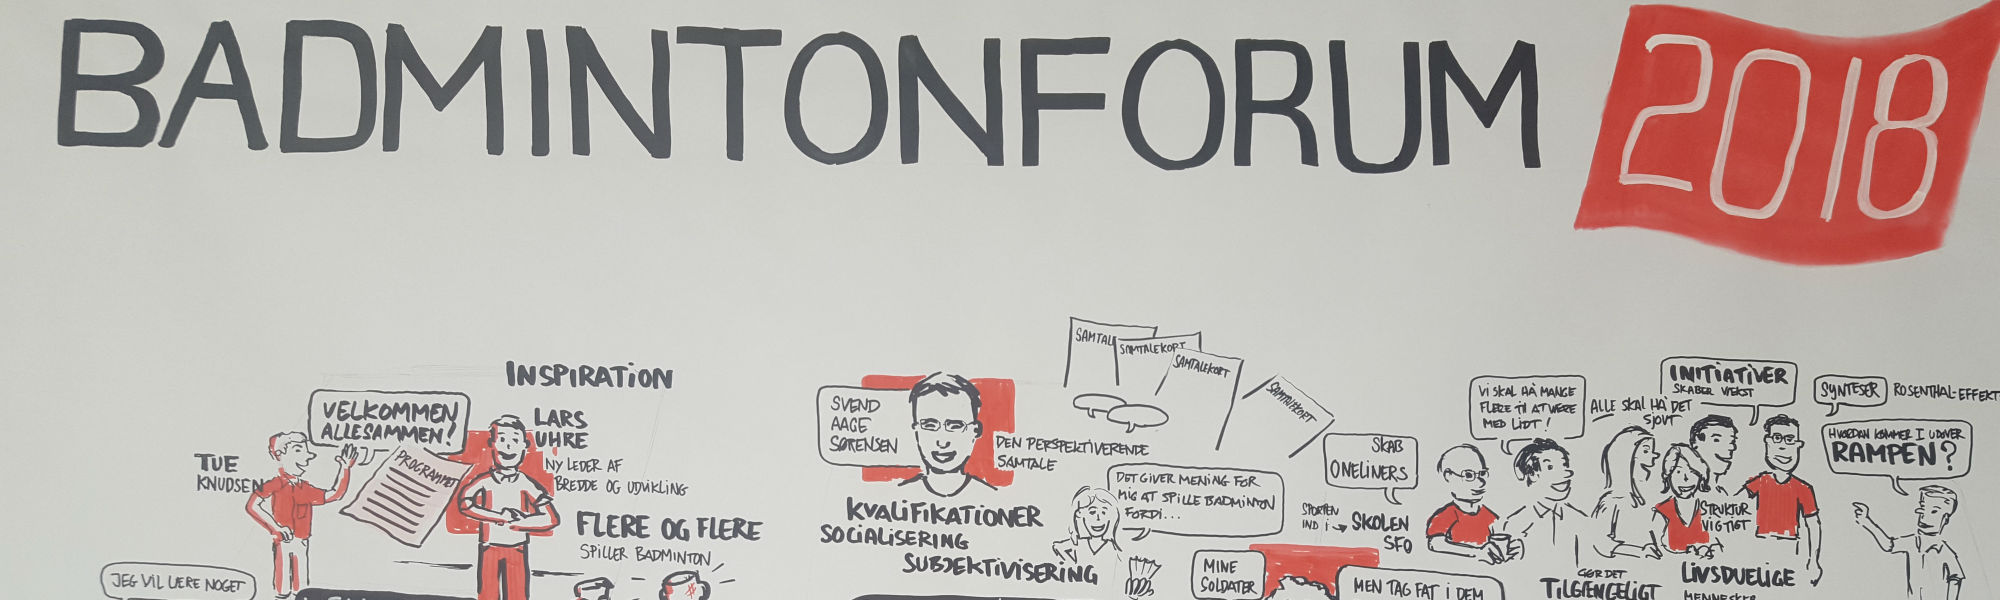 BADMINTONFORUM
2018
INSPIRATION
VELKOMMEN
ALLESAMMEN!
TUE
KNUDSEN
PROGRAMMET
LARS
UHRE
NY LEDER AF
BREDDE OG UDVIKLING
FLERE OG FLERE
SPILLER BADMINTON
JEG VIL LÆRE NOGET
SVEND
AAGE
SØRENSEN
DEN PERSPEKTIVERENDE
SAMTALE
KVALIFIKATIONER
SOCIALISERING
SUBJEKTIVISERING
SAMTAL
SAMTALEKORT
SAMTALEKORT
SAMTALEKORT
DET GIVER MENING FOR
MIG AT SPILLE BADMINTON
FORDI...
MINE
SOLDATER
SKAB
ONELINERS
SPORTEN
IND I → SKOLEN
SFO
MEN TAG FAT I DEM
VI SKAL HA MANGE
FLERE TIL AT VÆRE
MED LIDT!
ALLE SKAL HA DET
SJOVT
INITIATIVER
SKABER VÆKST
STRUKTUR
VIGTIGT
GØR DET
TILGÆNGELIGT
LIVSDUELIGE
MENNESKER
SYNTESER
ROSENTHAL-EFFEKT
HVORDAN KOMMER I UDOVER
RAMPEN?